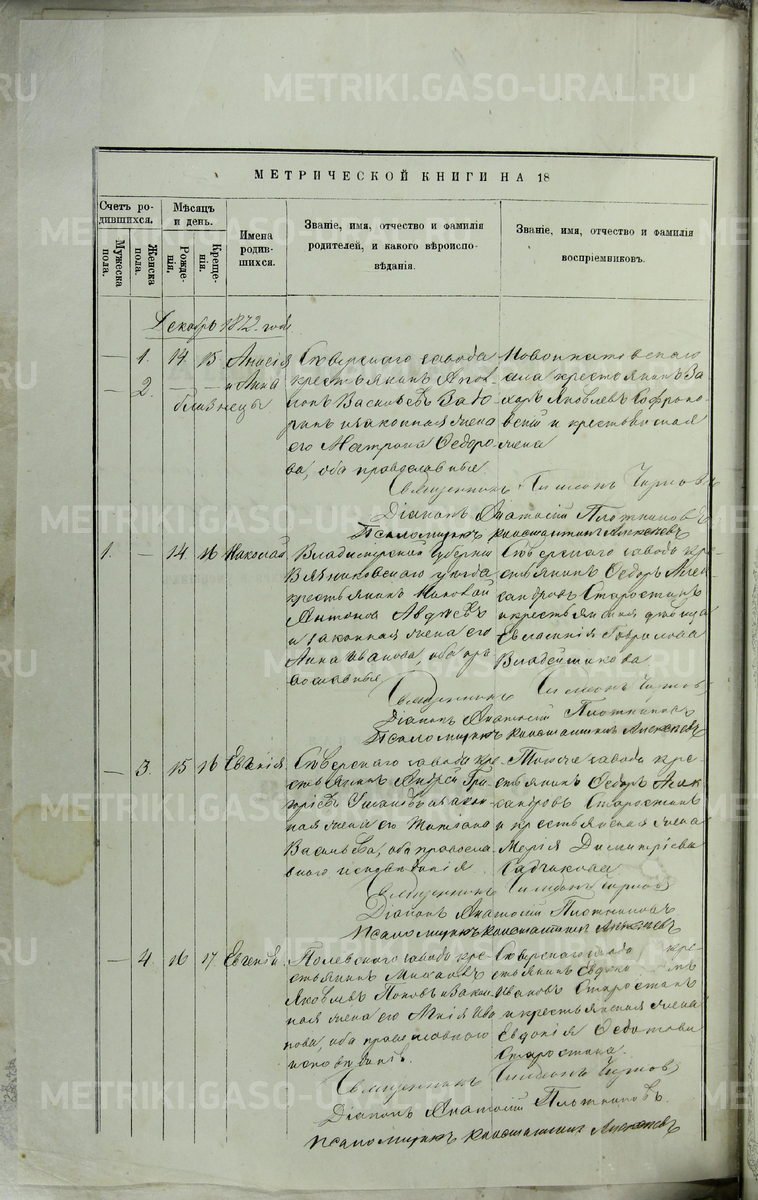 МЕТРИЧЕСКОЙ КНИГИ НА 18
Счетъ родившихся.
Мужеска пола.
Женска пола.
Мѣсяцъ и день.
Рожденія.
Крещенія.
Имена родившихся.
Званіе, имя, отчество и фамилія родителей, и какого вѣроисповѣданія.
Званіе, имя, отчество и фамилія воспріемниковъ.
Декабрь 1872 года
— 1. 14 15 Анисія
— 2. — — и Анна
близнецы
Сѣверскаго завода
крестьянинъ
Васильевъ
и законная жена
его Матрона Ѳедоро
ва, оба православные
крестьянинъ За
харъ Яковлевъ
и крестьянская
жена
Священникъ Симеонъ
Діаконъ Анатолій Плотниковъ
Псаломщикъ Константинъ Алексѣевъ
1. — 14 16 Николай
Владимірской губерніи
Вязниковскаго уѣзда
крестьянинъ Николай
Антоновъ Авдѣевъ
и законная жена его
Анна Иванова, оба пра
вославные
Сѣверскаго завода кре
стьянинъ Ѳедоръ Алек
сандровъ Старостинъ
и крестьянская дѣвица
Евлампія Гаврилова
Священникъ Симеонъ
Діаконъ Анатолій Плотниковъ
Псаломщикъ Константинъ Алексѣевъ
— 3. 15 16 Евгенія
Сѣверскаго завода кре
стьянинъ Андрей Гри
горьевъ и закон
ная жена его Татіана
Васильева, оба правосла
внаго исповѣданія
Тогоже завода кре
стьянинъ Ѳедоръ Алек
сандровъ Старостинъ
и крестьянская жена
Марія Димитріева
Священникъ Симеонъ
Діаконъ Анатолій Плотниковъ
Псаломщикъ Константинъ Алексѣевъ
— 4. 16 17 Евгенія
Полевскаго завода кре
стьянинъ
Яковлевъ Поповъ и закон
ная жена его Ива
нова, оба православнаго
исповѣданія
Сѣверскаго завода кре
стьянинъ
Ивановъ Старостинъ
и крестьянская жена
Евдокія Ѳедотова
Старостина.
Священникъ Симеонъ
Діаконъ Анатолій Плотниковъ.
Псаломщикъ Константинъ Алексѣевъ
METRIKI.GASO-URAL.RU